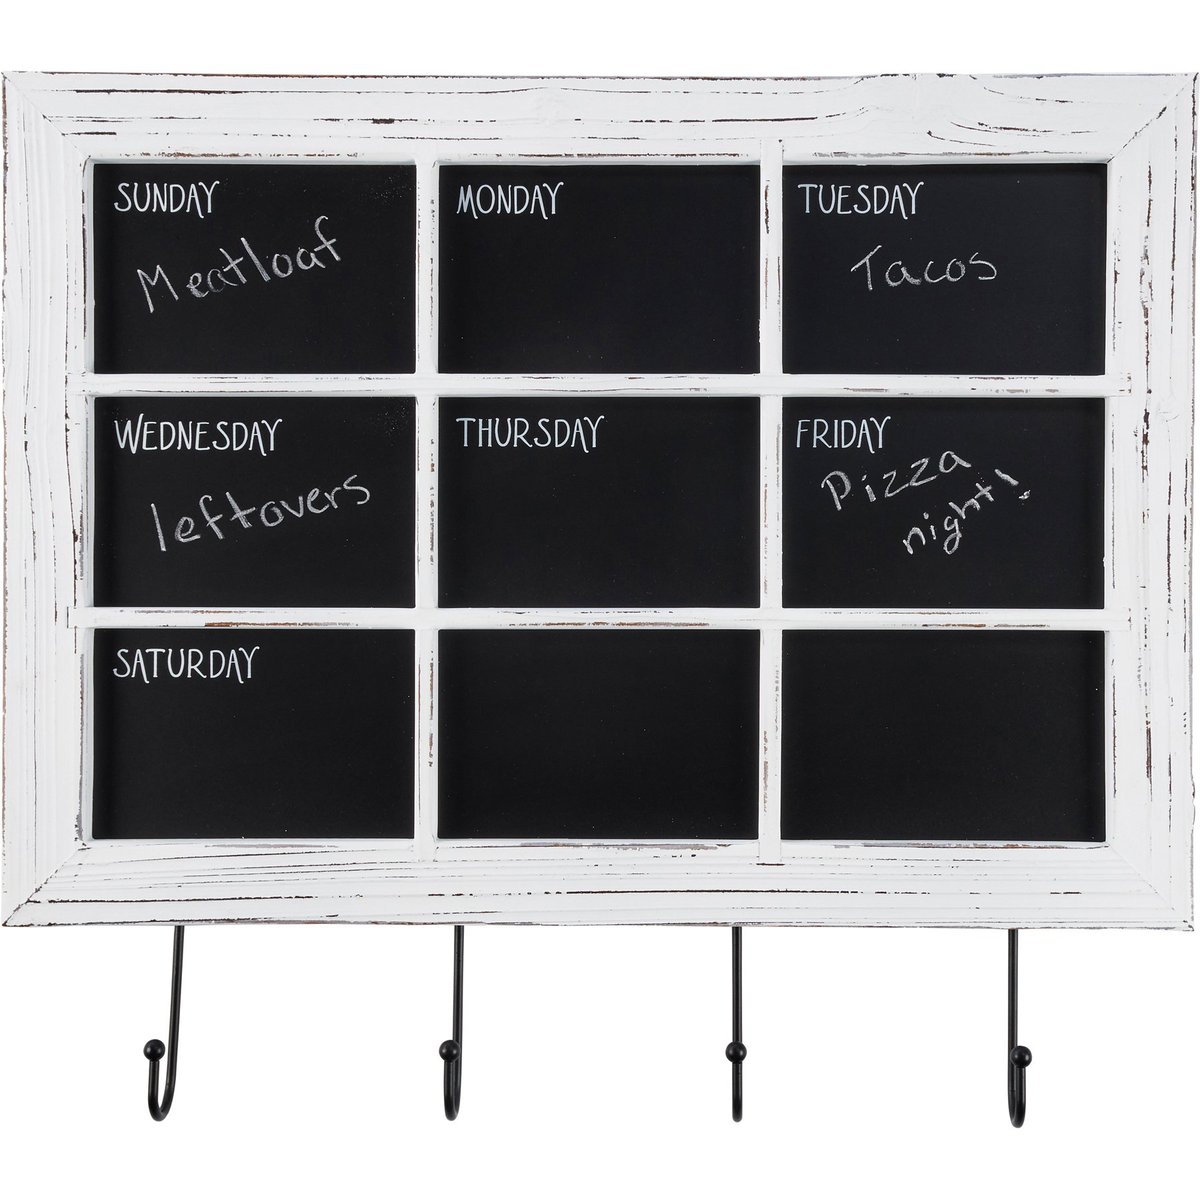 SUNDAY
Meatloaf
MONDAY
TUESDAY
Tacos
WEDNESDAY
leftovers
THURSDAY
FRIDAY
Pizza
night!
SATURDAY